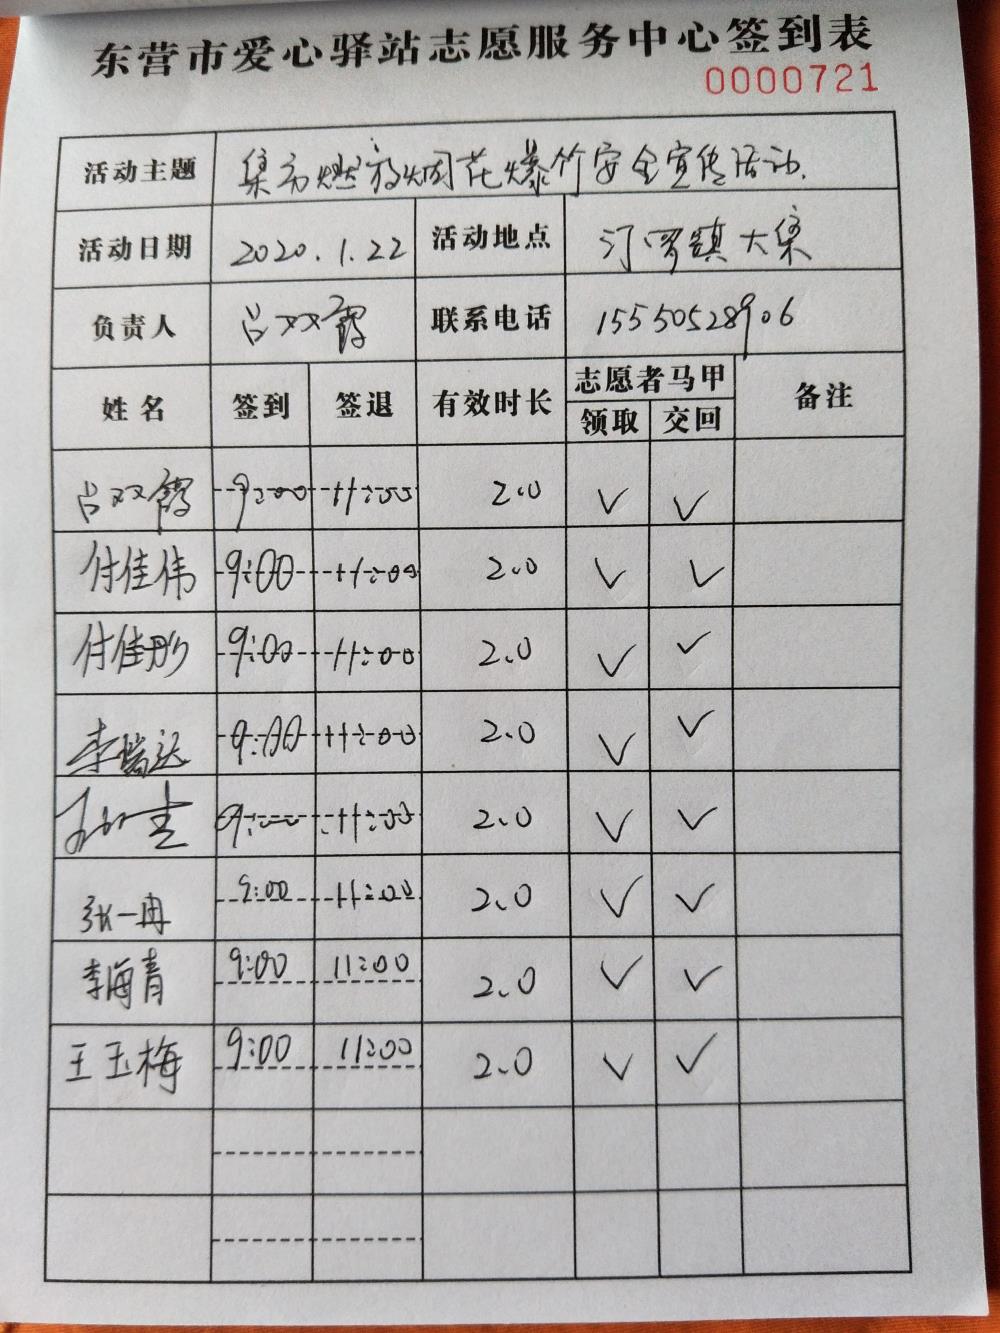 东营市爱心驿站志愿服务中心签到表
0000721
活动主题 集市燃放烟花爆竹安全宣传活动.
活动日期 2020.1.22 活动地点 汀罗镇大集
负责人 吕双霞 联系电话 15550528906
姓名 签到 签退 有效时长 志愿者马甲 备注
领取 交回
吕双霞 9:00 11:00 2.0 √ √
付佳伟 9:00 11:00 2.0 √ √
付佳彤 9:00 11:00 2.0 √ √
李瑞达 9:00 11:00 2.0 √ √
9:00 11:00 2.0 √ √
张一冉 9:00 11:00 2.0 √ √
李海青 9:00 11:00 2.0 √ √
王玉梅 9:00 11:00 2.0 √ √